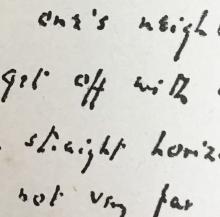 one's neigh
get off with
straight horiz
not very far